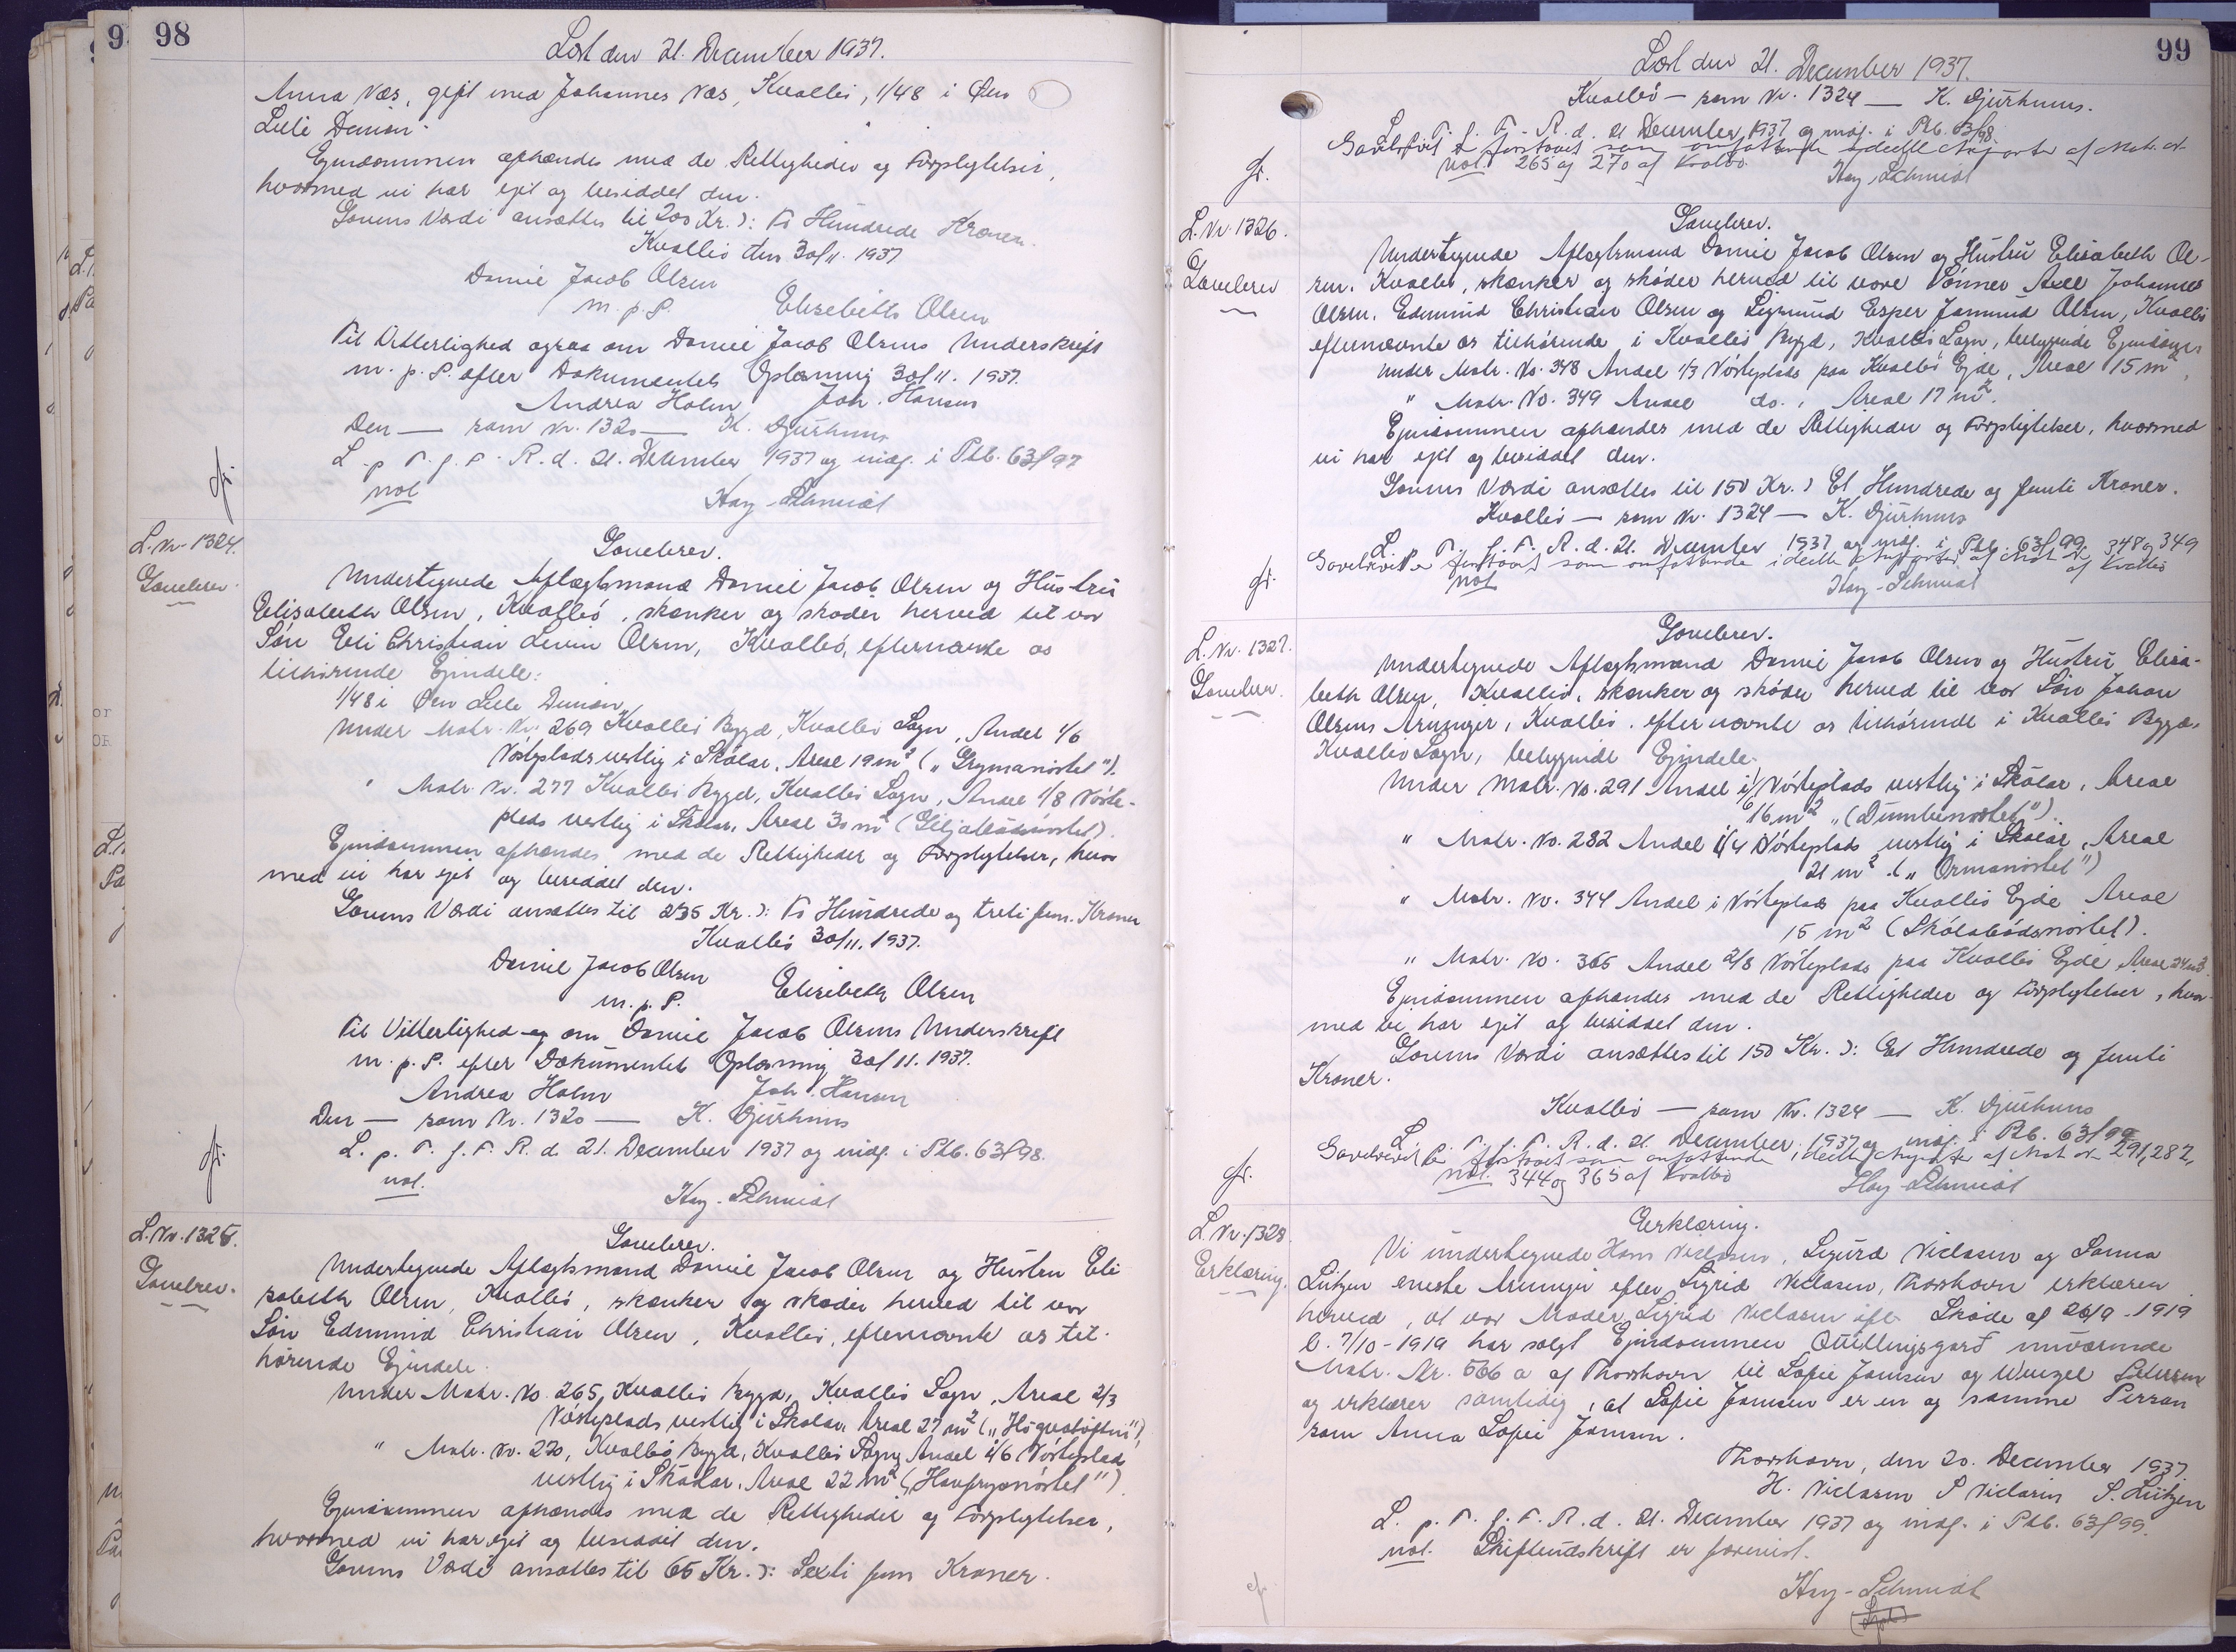 98
Læst den 21. December 1937.
Anna Næs, gift med Johannes Næs, Kvalbø, 1/48 i Øen
Lille Dimon.
Ejendommen afhændes med de Rettigheder og Forpligtelser,
hvormed vi har ejet og besiddet den.
Gavens Værdi ansættes til 200 Kr. ɔ: To Hundrede Kroner.
Kvalbø den 30/11. 1937
Daniel Jacob Olsen
m. p. P. Elisabeth Olsen
Til Vitterlighed ogsaa om Daniel Jacob Olsens Underskrift
m. p. P. efter Dokumentets Oplæsning 30/11. 1937.
Andrea Holm Joh. Hansen
Den — som Nr. 1320 — K. Djurhuus
L. p. T. f. F. R. d. 21. December 1937 og indf. i Ptb. 63f97
not
Hay-Schmidt
L. Nr. 1324.
Gavebrev.
Gavebrev.
Undertegnede Aflægtsmand Daniel Jacob Olsen og Hustru
Elisabeth Olsen, Kvalbø, skænker og skøder herved til vor
Søn Eli Christian Levin Olsen, Kvalbø, efternævnte os
tilhørende Ejendele:
1/48 i Øen Lille Dimon
Under Matr. Nr. 269 Kvalbø Bygd, Kvalbø Sogn, Andel 1/6
Nósteplads vestlig i Skálar, Areal 19 m² („Grymanóstel").
" Matr. Nr. 277 Kvalbø Bygd, Kvalbø Sogn, Andel 1/8 Nóste-
plads vestlig i Skálar, Areal 30 m² (Giljabødsnóstel).
Ejendommen afhændes med de Rettigheder og Forpligtelser, hvor
med vi har ejet og besiddet den.
Gavens Værdi ansættes til 235 Kr. ɔ: To Hundrede og treti fem Kroner
Kvalbø 30/11. 1937.
Daniel Jacob Olsen
m. p. P. Elisabeth Olsen
Til Vitterlighed og om Daniel Jacob Olsens Underskrift
m. p. P. efter Dokumentets Oplæsning 30/11. 1937.
Andrea Holm Joh. Hansen
Den — som Nr. 1320 — K. Djurhuus
L. p. T. f. F. R. d. 21. December 1937 og indf. i Ptb. 63f98.
not.
Hay-Schmidt
L. Nr. 1325.
Gavebrev.
Gavebrev.
Undertegnede Aflægtsmand Daniel Jacob Olsen og Hustru Eli
sabeth Olsen, Kvalbø, skænker og skøder herved til vor
Søn Edmund Christian Olsen, Kvalbø, efternævnte os til-
hørende Ejendele.
Under Matr. No. 265, Kvalbø Bygd, Kvalbø Sogn, Areal 2/3
Nósteplads vestlig i Skálar, Areal 27 m²
" Matr. Nr. 270, Kvalbø Bygd, Kvalbø Sogn, Andel i 1/6 Nósteplads
vestlig i Skálar, Areal 22 m²
Ejendommen afhændes med de Rettigheder og Forpligtelser,
hvormed vi har ejet og besiddet den.
Gavens Værdi ansættes til 65 Kr. ɔ: Sexti fem Kroner.
99
Læst den 21. December 1937.
Kvalbø — som Nr. 1324 — K. Djurhuus.
L. p. T. f. F. R. d. 21 December 1937 og indf. i Ptb. 63f98.
Gavebrevet er forstaaet som omfattende ideelle Anparter af Matr. Nr.
not. 265 og 270 af Kvalbø
Hay-Schmidt
L. Nr. 1326.
Gavebrev
Gavebrev.
Undertegnede Aflægtsmand Daniel Jacob Olsen og Hustru Elisabeth Ol-
sen, Kvalbø, skænker og skøder herved til vore Sønner Axel Johannes
Olsen, Edmund Christian Olsen og Sigmund Esper Jomund Olsen, Kvalbø
efternævnte os tilhørende i Kvalbø Bygd, Kvalbø Sogn, beliggende Ejendom
Under Matr. No. 348 Andel 1/3 Nósteplads paa Kvalbø Ejde, Areal 15 m²,
" Matr. No. 349 Andel do., Areal 17 m².
Ejendommen afhændes med de Rettigheder og Forpligtelser, hvormed
vi har ejet og besiddet den.
Gavens Værdi ansættes til 150 Kr. ɔ Et Hundrede og femti Kroner.
Kvalbø — som Nr. 1324 — K. Djurhuus
L. p. T. f. F. R. d. 21. December 1937 og indf. i Ptb. 63f99
Gavebrevet er forstaaet som omfattende ideelle Anparter af Matr. Nr. 348 og 349
not af Kvalbø
Hay-Schmidt
L. Nr. 1327.
Gavebrev.
Gavebrev.
Undertegnede Aflægtsmand Daniel Jacob Olsen og Hustru Elisa-
beth Olsen, Kvalbø, skænker og skøder herved til vor Søn Johan
Olsens Arvinger, Kvalbø, efternævnte os tilhørende i Kvalbø Bygd,
Kvalbø Sogn, beliggende Ejendele.
Under Matr. No. 291 Andel i 1/6 Nósteplads vestlig i Skálar, Areal
16 m² „(Dumbinóstel").
" Matr. No. 282 Andel i 1/4 Nósteplads vestlig i Skálar, Areal
21 m². („Ormanóstel")
" Matr. No. 344 Andel i Nósteplads paa Kvalbø Ejde Areal
15 m² (Skálabødsnóstel).
" Matr. No. 365 Andel 2/8 Nósteplads paa Kvalbø Ejde, Areal 24 m²
Ejendommen afhændes med de Rettigheder og Forpligtelser, hvor-
med vi har ejet og besiddet den.
Gavens Værdi ansættes til 150 Kr. ɔ: Et Hundrede og femti
Kroner.
Kvalbø — som Nr. 1324 — K. Djurhuus
L. p. T. f. F. R. d. 21. December 1937 og indf. i Ptb. 63f99
Gavebrevet er forstaaet som omfattende ideelle Anparter af Matr. Nr. 291, 282,
not. 344 og 365 af Kvalbø
Hay-Schmidt
L. Nr. 1328
Erklæring.
Erklæring.
Vi undertegnede Hans Niclasen, Sigurd Niclasen og Sanna
Lützen eneste Arvinger efter Sigrid Niclasen, Thorshavn erklærer
herved, at vor Moder Sigrid Niclasen ifl. Skøde af 26/9-1919
l. 7/10-1919 har solgt Ejendommen Quillingsgard nuværende
Matr. Nr. 566 a af Thorshavn til Sofie Jensen og Wenzel Petersen
og erklærer samtidig, at Sofie Jensen er en og samme Person
som Anna Sofie Jensen.
Thorshavn, den 20. December 1937
H. Niclasen S Niclasen S. Lützen
L. p. T. f. F. R. d. 21. December 1937 og indf. i Ptb. 63f99.
not. Skifteudskrift er forevist.
Hay-Schmidt